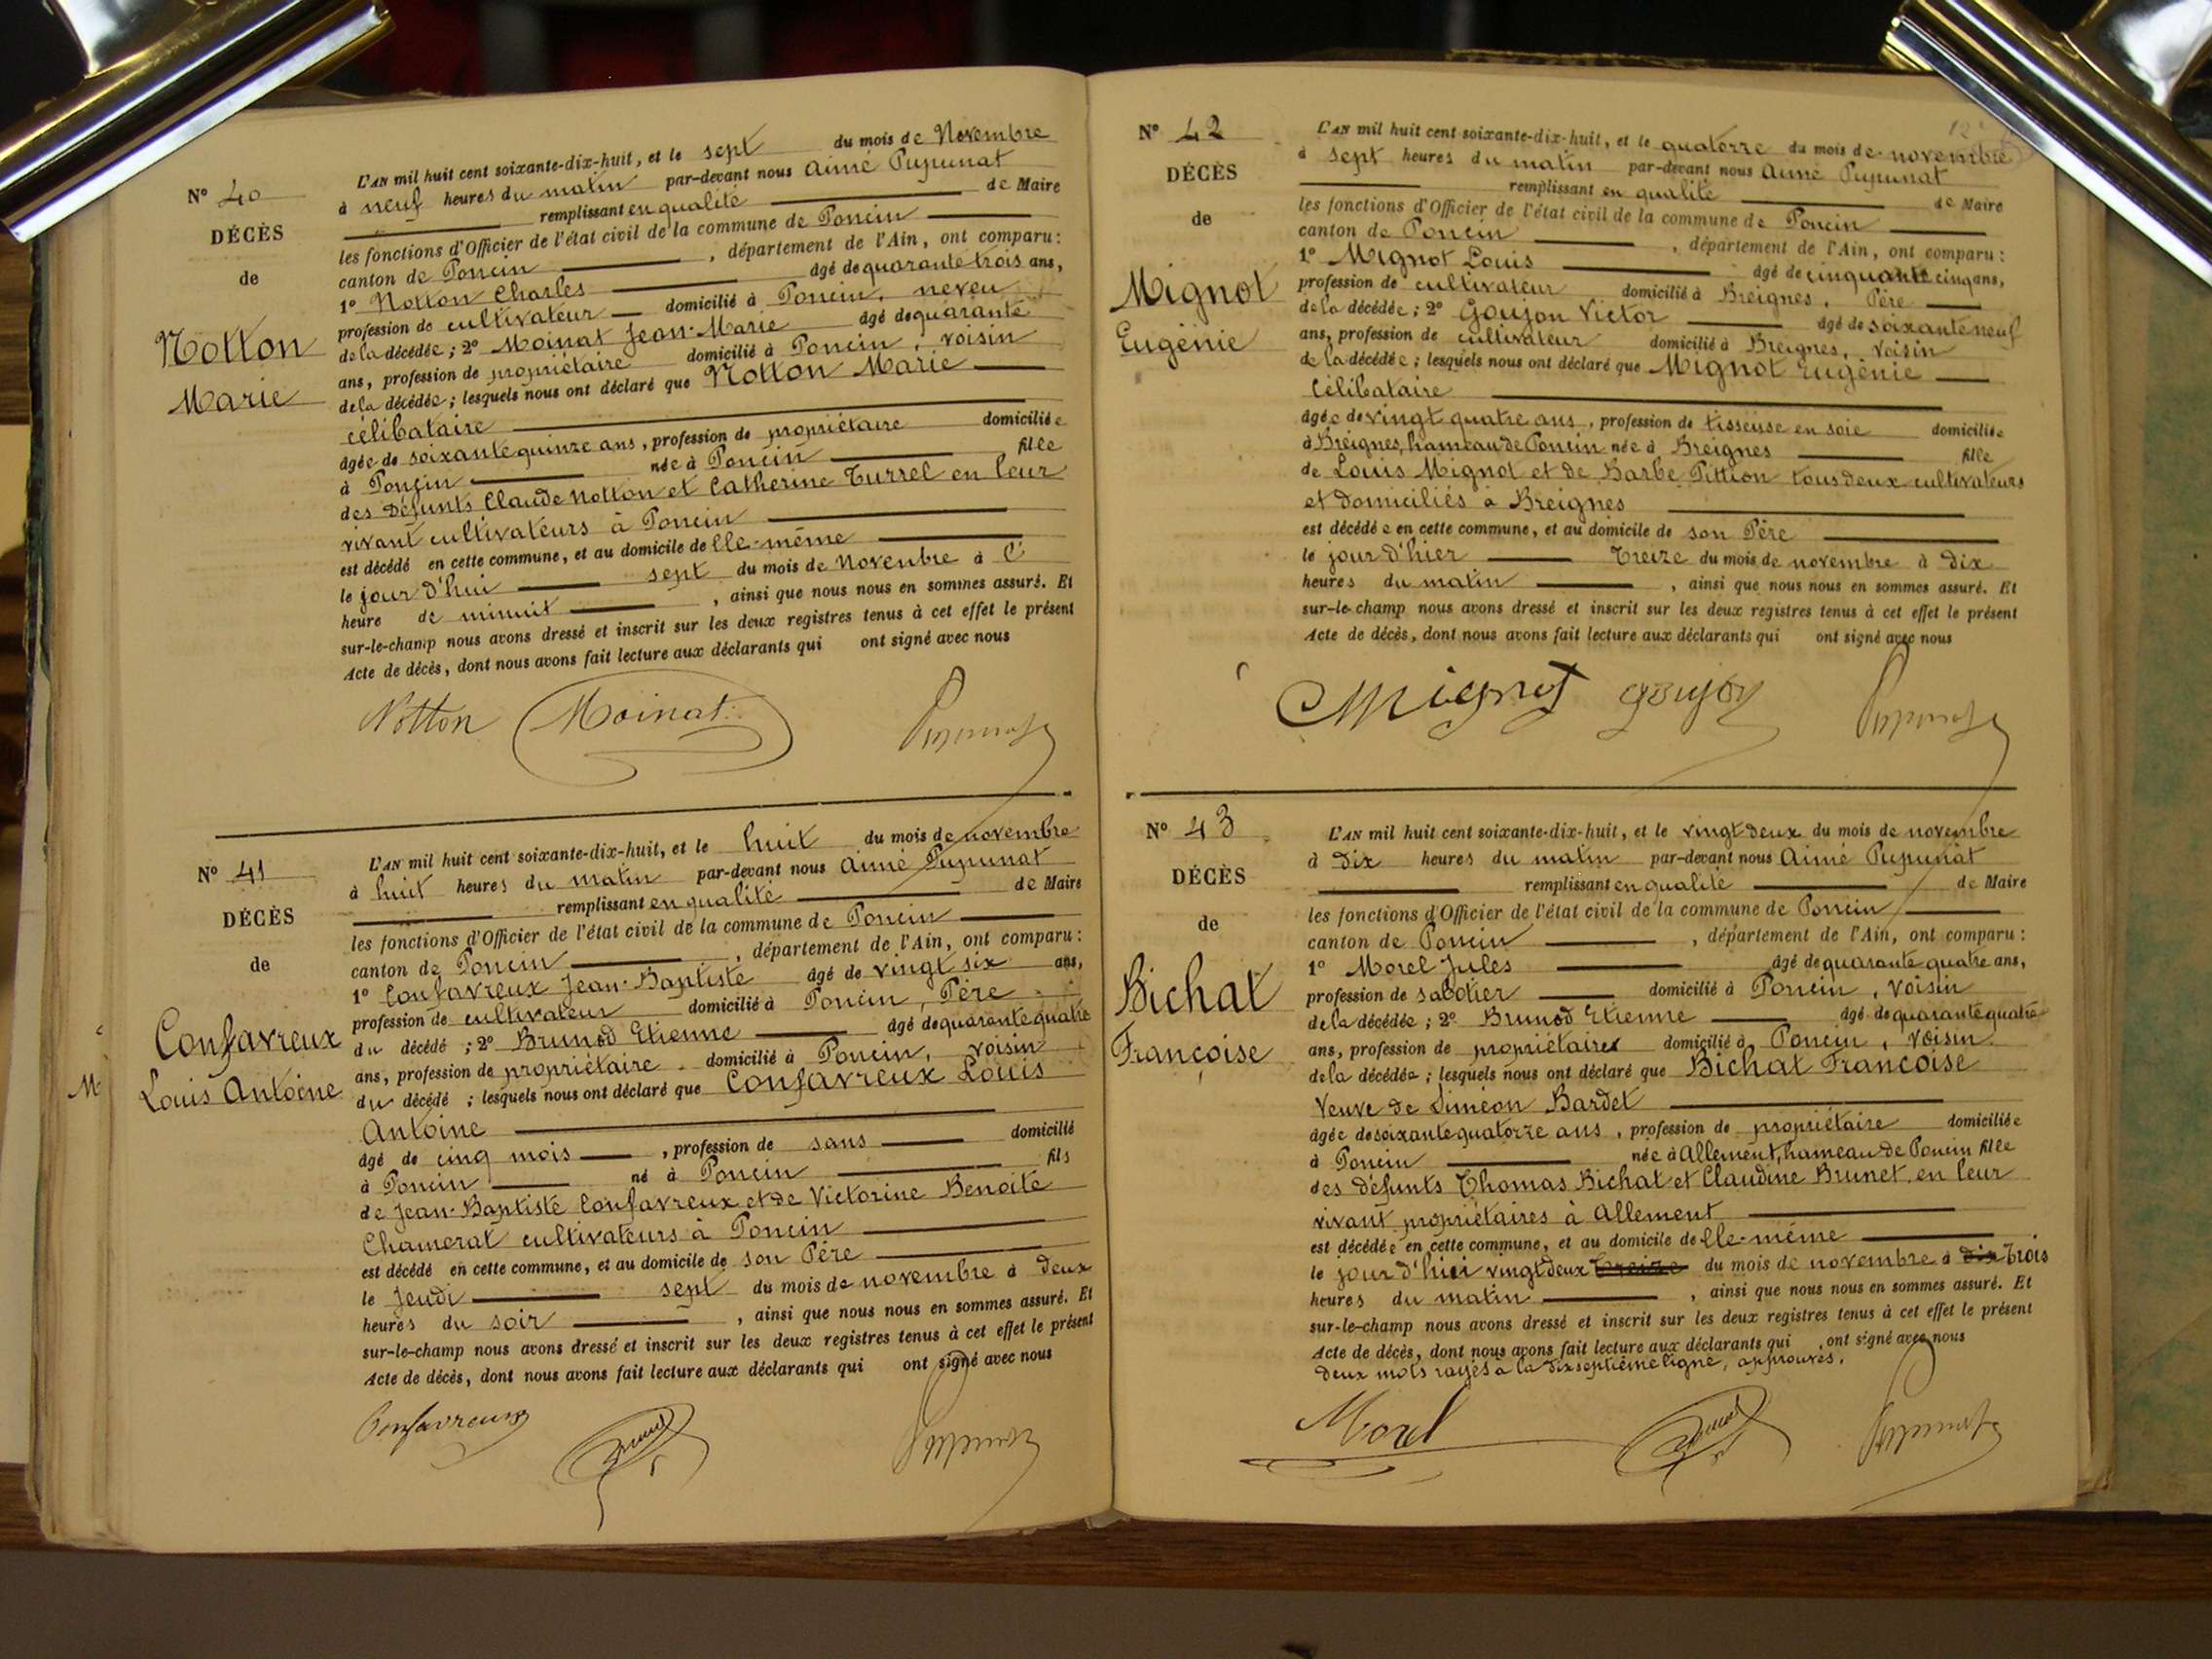 N° 40
DÉCÈS
de
Notton
Marie
L'AN mil huit cent soixante-dix-huit, et le sept du mois de Novembre
à neuf heures du matin par-devant nous Aimé Pupunat
remplissant en qualité de Maire
les fonctions d'Officier de l'état civil de la commune de Poncin
canton de Poncin , département de l'Ain, ont comparu :
1° Notton Charles âgé de quarante trois ans,
profession de cultivateur domicilié à Poncin, neveu
de la décédée ; 2° Moinat Jean-Marie âgé de quarante
ans, profession de propriétaire domicilié à Poncin, voisin
de la décédée ; lesquels nous ont déclaré que Notton Marie
célibataire
âgée de soixante quinze ans, profession de propriétaire domiciliée
à Poncin née à Poncin fille
des défunts Claude Notton et Catherine Turrel en leur
vivant cultivateurs à Poncin
est décédé en cette commune, et au domicile de Elle-même
le jour d'hui sept du mois de Novembre à
heure de minuit , ainsi que nous nous en sommes assuré. Et
sur-le-champ nous avons dressé et inscrit sur les deux registres tenus à cet effet le présent
Acte de décès, dont nous avons fait lecture aux déclarants qui ont signé avec nous
Notton Moinat Pupunat
N° 41
DÉCÈS
de
Confavreux
Louis Antoine
M
L'AN mil huit cent soixante-dix-huit, et le huit du mois de novembre
à huit heures du matin par-devant nous Aimé Pupunat
remplissant en qualité de Maire
les fonctions d'Officier de l'état civil de la commune de Poncin
canton de Poncin , département de l'Ain, ont comparu :
1° Confavreux Jean-Baptiste âgé de vingt six ans,
profession de cultivateur domicilié à Poncin, Père
du décédé ; 2° Brunod Etienne âgé de quarante quatre
ans, profession de propriétaire domicilié à Poncin, voisin
du décédé ; lesquels nous ont déclaré que Confavreux Louis
Antoine
âgé de cinq mois , profession de sans domicilié
à Poncin né à Poncin fils
de Jean-Baptiste Confavreux et de Victorine Benoite
Chamerat cultivateurs à Poncin
est décédé en cette commune, et au domicile de son Père
le Jeudi sept du mois de novembre à deux
heures du soir , ainsi que nous nous en sommes assuré. Et
sur-le-champ nous avons dressé et inscrit sur les deux registres tenus à cet effet le présent
Acte de décès, dont nous avons fait lecture aux déclarants qui ont signé avec nous
Confavreux Brunod Pupunat
N° 42
DÉCÈS
de
Mignot
Eugènie
L'AN mil huit cent soixante-dix-huit, et le quatorze du mois de novembre
à sept heures du matin par-devant nous Aimé Pupunat
remplissant en qualité de Maire
les fonctions d'Officier de l'état civil de la commune de Poncin
canton de Poncin , département de l'Ain, ont comparu :
1° Mignot Louis âgé de cinquante cinq ans,
profession de cultivateur domicilié à Breignes, Père
de la décédée ; 2° Goujon Victor âgé de soixante neuf
ans, profession de cultivateur domicilié à Breignes, voisin
de la décédée ; lesquels nous ont déclaré que Mignot Eugènie
Célibataire
âgée de vingt quatre ans, profession de tisseuse en soie domiciliée
à Breignes, hameau de Poncin née à Breignes fille
de Louis Mignot et de Barbe Pittion tous deux cultivateurs
et domiciliés à Breignes
est décédée en cette commune, et au domicile de son Père
le jour d'hier Treize du mois de novembre à dix
heures du matin , ainsi que nous nous en sommes assuré. Et
sur-le-champ nous avons dressé et inscrit sur les deux registres tenus à cet effet le présent
Acte de décès, dont nous avons fait lecture aux déclarants qui ont signé avec nous
Mignot goujon Pupunat
N° 43
DÉCÈS
de
Bichat
Françoise
L'AN mil huit cent soixante-dix-huit, et le vingt deux du mois de novembre
à dix heures du matin par-devant nous Aimé Pupunat
remplissant en qualité de Maire
les fonctions d'Officier de l'état civil de la commune de Poncin
canton de Poncin , département de l'Ain, ont comparu :
1° Morel Jules âgé de quarante quatre ans,
profession de sabotier domicilié à Poncin, voisin
de la décédée ; 2° Brunod Etienne âgé de quarante quatre
ans, profession de propriétaire domicilié à Poncin, voisin
de la décédée ; lesquels nous ont déclaré que Bichat Françoise
Veuve de Siméon Bardet
âgée de soixante quatorze ans, profession de propriétaire domiciliée
à Poncin née à Allement, hameau de Poncin fille
des défunts Thomas Bichat et Claudine Brunet en leur
vivant propriétaires à Allement
est décédée en cette commune, et au domicile de Elle-même
le jour d'hui vingt deux treize du mois de novembre à dix trois
heures du matin , ainsi que nous nous en sommes assuré. Et
sur-le-champ nous avons dressé et inscrit sur les deux registres tenus à cet effet le présent
Acte de décès, dont nous avons fait lecture aux déclarants qui ont signé avec nous
Deux mots rayés à la dix septième ligne, approuvés.
Morel Brunod Pupunat